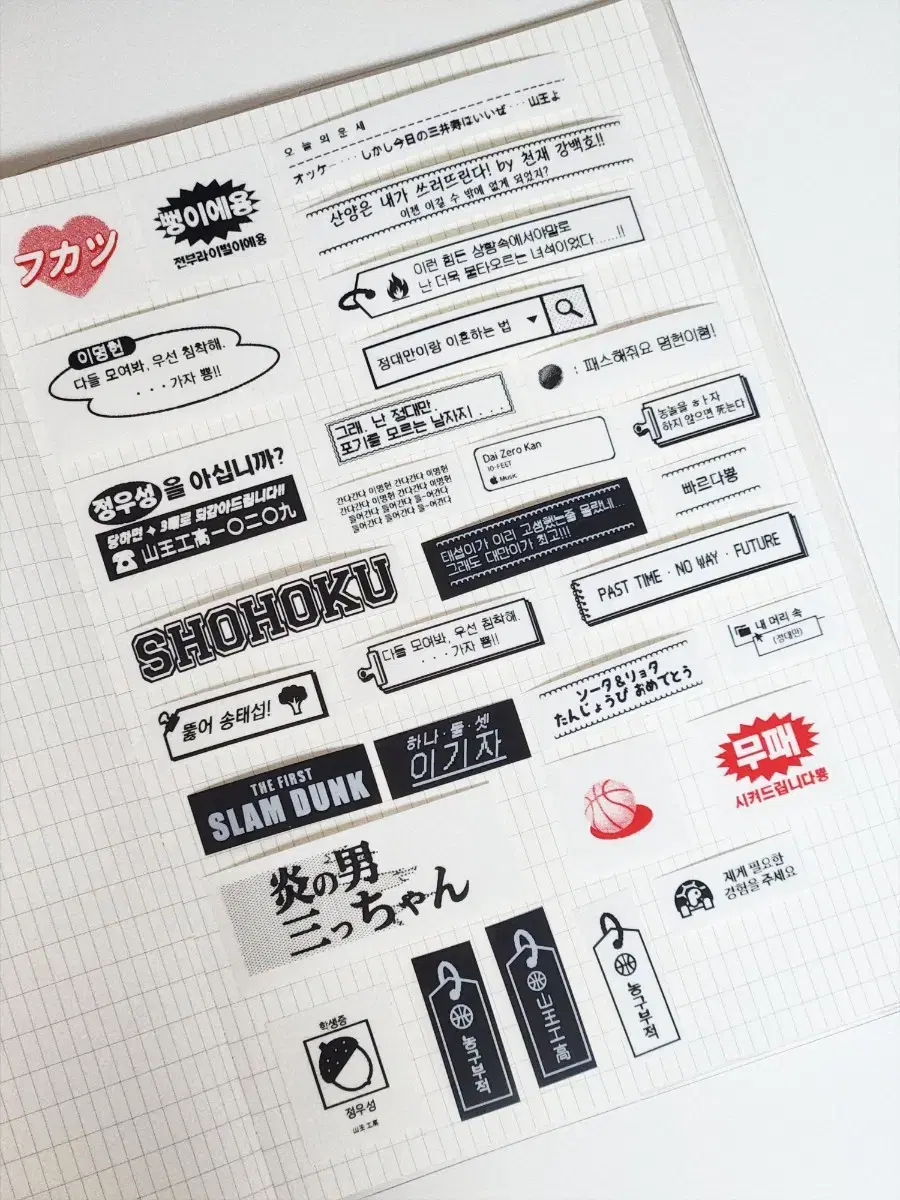 오늘의 운세
オッケー・・・・しかし今日の三井寿はいいぜ・・・山王よ
산양은 내가 쓰러뜨린다! by 천재 강백호!!
이젠 이길 수 밖에 없게 되었지?
フカツ
뿅이에용
전부라이벌이에용
이런 힘든 상황속에서야말로
난 더욱 불타오르는 녀석이었다.....!!
이명헌
다들 모여봐, 우선 침착해.
・・・가자 뿅!!
정대만이랑 이혼하는 법
: 패스해줘요 명헌이형!
그래. 난 정대만.
포기를 모르는 남자지 . . . .
Dai Zero Kan
10-FEET
Music
농놀을 ㅎㅏ자
하지 않으면 死는다
정우성을 아십니까?
당하면 + 3배로 되갚아드립니다!!
☎ 山王工高一〇二〇九
간다간다 이명헌 간다간다 이명헌
간다간다 이명헌 간다간다 이명헌
들어간다 들어간다 들-어간다
들어간다 들어간다 들-어간다
태섭이가 이리 고생했는줄 몰랐네...
그래도 대만이가 최고!!!
빠르다뿅
SHOHOKU
PAST TIME · NO WAY · FUTURE
다들 모여봐, 우선 침착해.
・・・가자 뿅!!
내 머리 속
(정대만)
뚫어 송태섭!
ソータ&リョタ
たんじょうび おめでとう
THE FIRST
SLAM DUNK
하나·둘·셋
이기자
무패
시켜드립니다뿅
炎の男
三っちゃん
제게 필요한
경험을 주세요
학생증
정우성
山王工高
농구부적
山王工高
농구부적